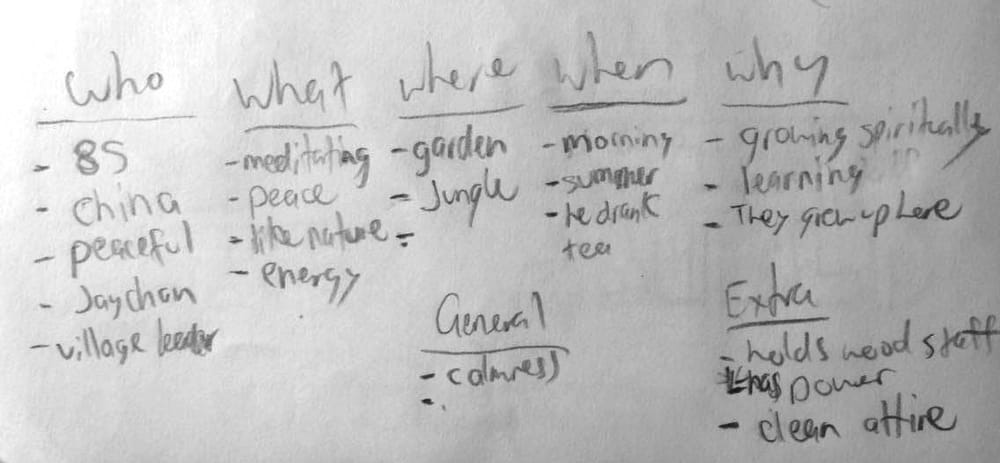 who
- 85
- china
- peaceful
- Jaychan
- village leader
what
- meditating
- peace
- like nature
- energy
where
- garden
- Jungle
-
when
- morning
- summer
- he drank
tea
why
- growing spiritually
- learning
- They grew up here
General
- calmness
-
Extra
- holds wood staff
- has power
- clean attire